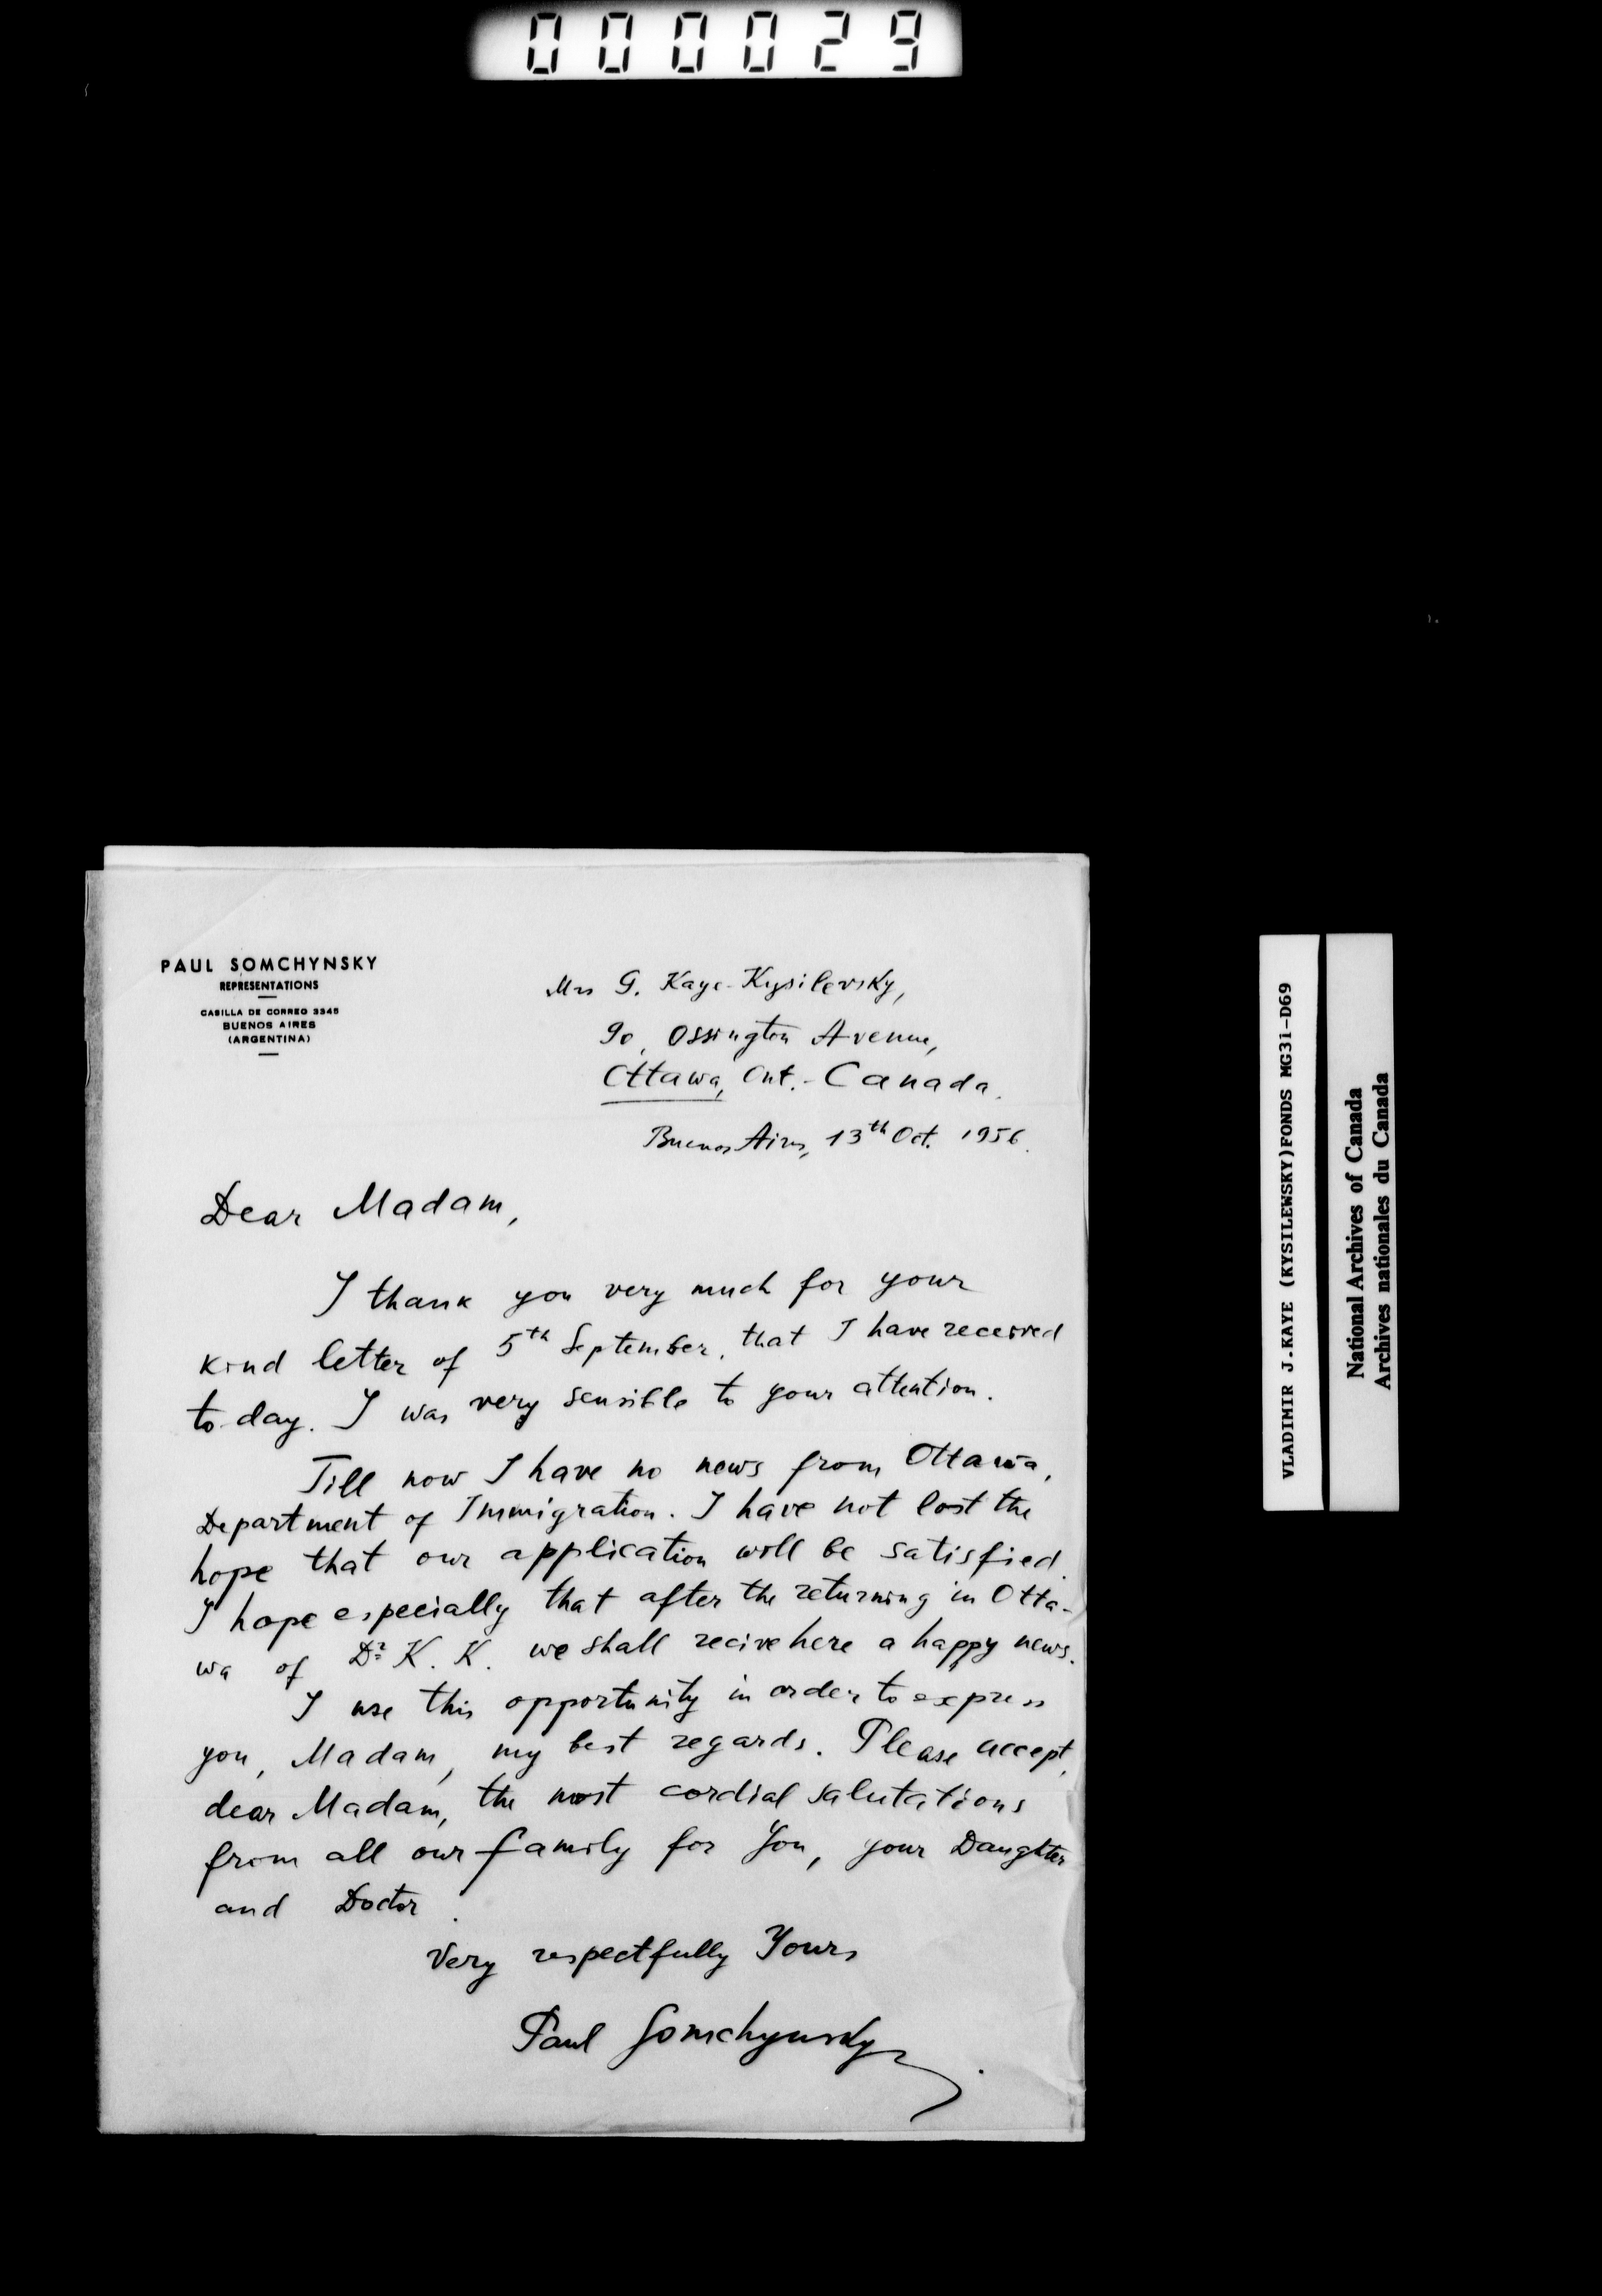 000029
PAUL SOMCHYNSKY
REPRESENTATIONS
CASILLA DE CORREO 3345
BUENOS AIRES
(ARGENTINA)
Mrs G. Kaye-Kysilevsky,
90, Ossington Avenue,
Ottawa, Ont.- Canada.
Buenos Aires, 13th Oct. 1956.
Dear Madam,
I thank you very much for your
kind letter of 5th September, that I have received
to-day. I was very sensible to your attention.
Till now I have no news from Ottawa,
Department of Immigration. I have not lost the
hope that our application will be satisfied.
I hope especially that after the returning in Otta-
wa of Dr K. K. we shall recive here a happy news.
I use this opportunity in order to express
you, Madam, my best regards. Please accept,
dear Madam, the most cordial salutations
from all our family for You, your Daughter
and Doctor.
Very respectfully Yours
Paul Somchynsky.
VLADIMIR J.KAYE (KYSILEWSKY)FONDS MG31-D69
National Archives of Canada
Archives nationales du Canada